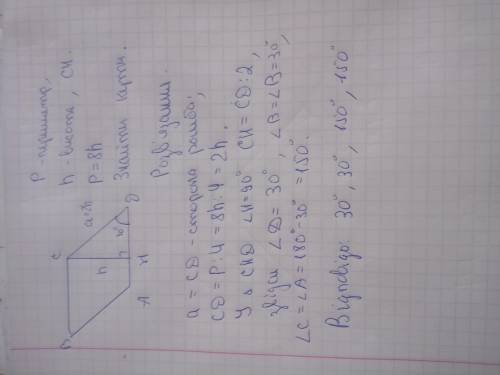 P - периметр,
h - висота, CH.
P = 8h
Знайти кути.
B
C
a=2h
h
30°
A
H
D
Розв'язання.
a = CD - сторона ромба;
CD = P : 4 = 8h : 4 = 2h.
У Δ CHD ∠H=90° CH = CD : 2,
звідси ∠D = 30°, ∠D = ∠B = 30°,
∠C = ∠A = 180° - 30° = 150°.
Відповідь: 30°, 30°, 150°, 150°